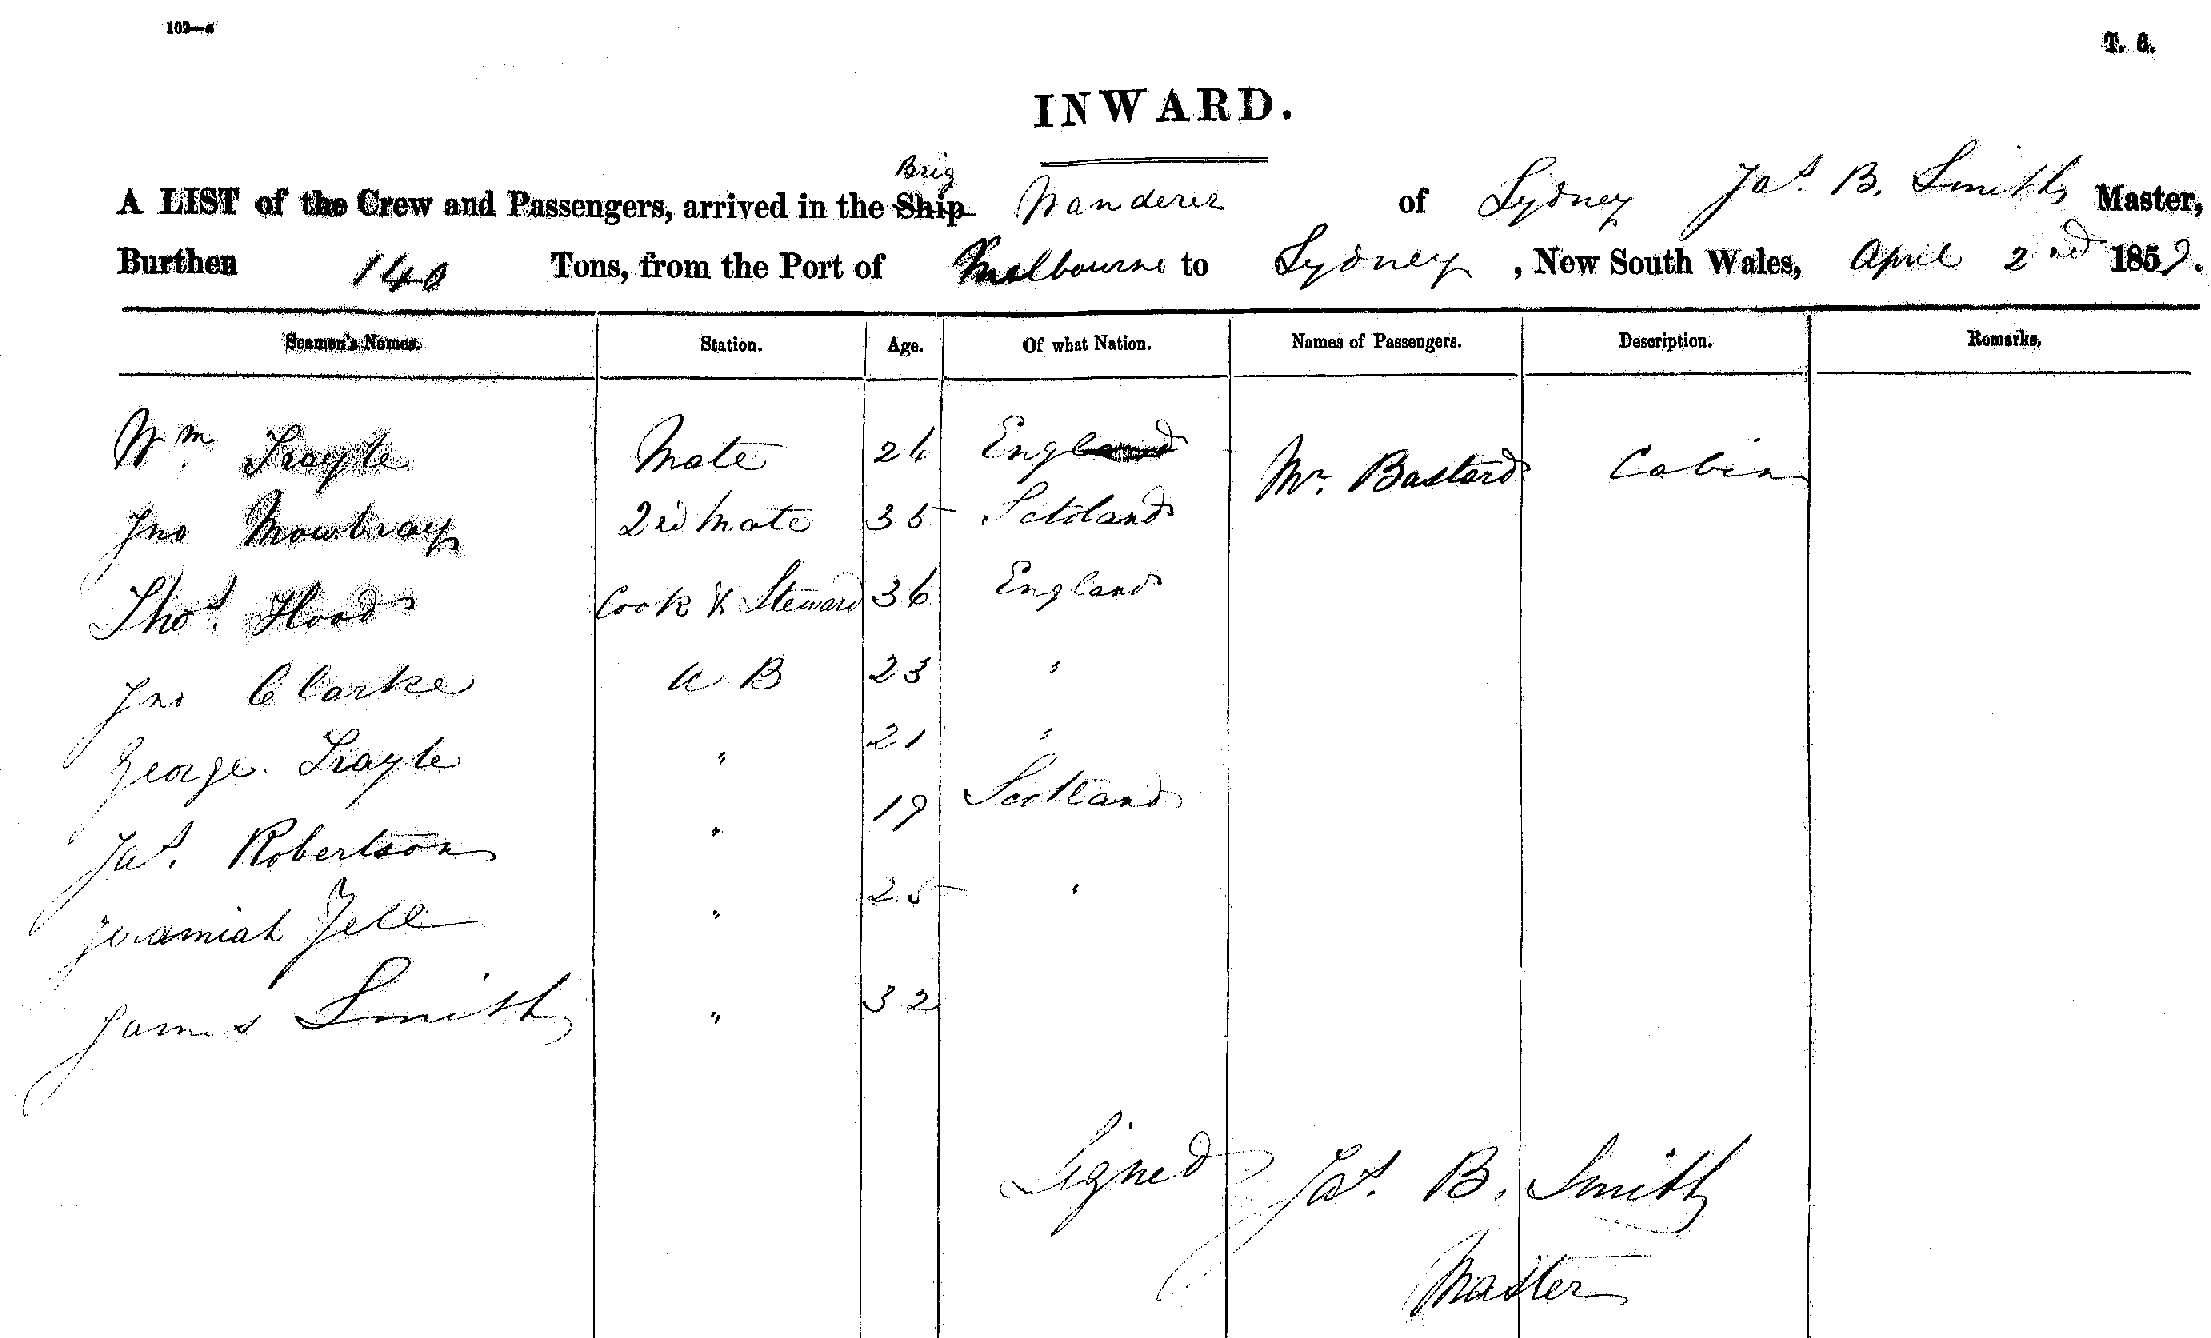 102—a
T. 6.
INWARD.
Brig
A LIST of the Crew and Passengers, arrived in the Ship Wanderer of Sydney Jas. B. Smith Master,
Burthen 140 Tons, from the Port of Melbourne to Sydney, New South Wales, April 2nd 1859.
Seamen's Names. Station. Age. Of what Nation. Names of Passengers. Description. Remarks.
Wm Mate 26 England Mr. Bastard Cabin
Jno Mowbray 2nd Mate 35 Scotland
Thos. Hood Cook & Steward 36 England
Jno Clarke A B 23 "
George " 21 "
Jas. Robertson " 19 Scotland
Jeramiah Fell " 25 "
James Smith " 32
Signed Jas. B. Smith
Master